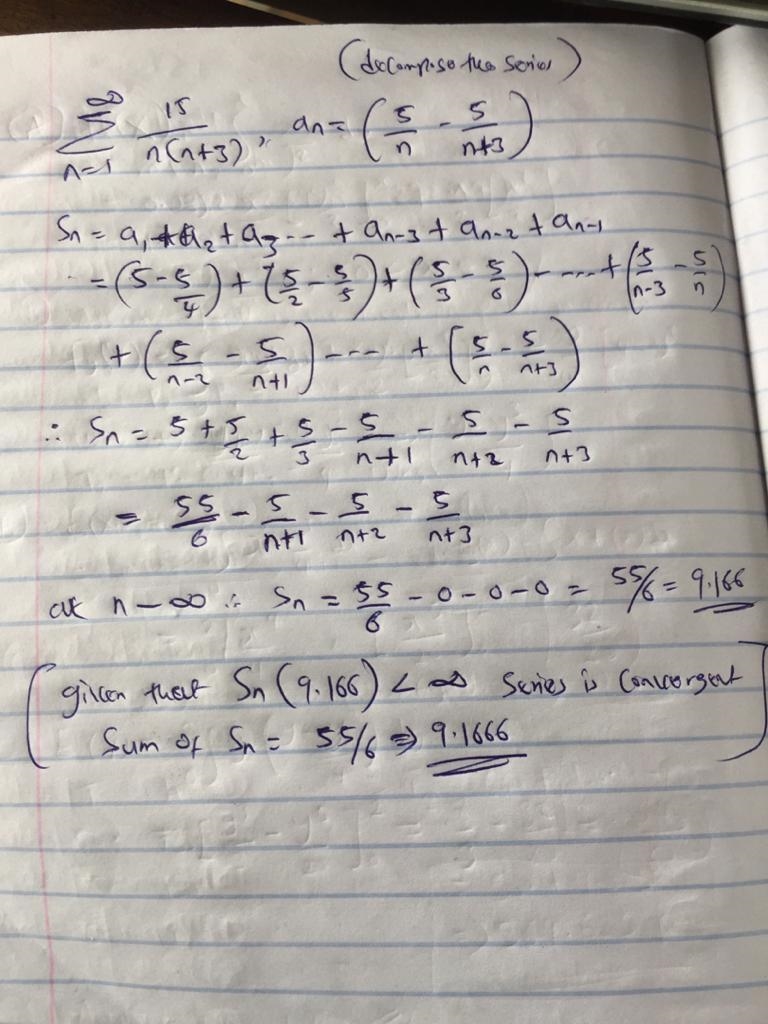 (decompose the series)
∞
∑ 15/n(n+3), an = (5/n - 5/n+3)
n=1
Sn = a1 + a2 + a3 --- + an-3 + an-2 + an-1
= (5 - 5/4) + (5/2 - 5/5) + (5/3 - 5/6) - ---- + (5/n-3 - 5/n)
+ (5/n-2 - 5/n+1) --- + (5/n - 5/n+3)
∴ Sn = 5 + 5/2 + 5/3 - 5/n+1 - 5/n+2 - 5/n+3
= 55/6 - 5/n+1 - 5/n+2 - 5/n+3
at n - ∞ ∴ Sn = 55/6 - 0 - 0 - 0 = 55/6 = 9.166
(given that Sn (9.166) < ∞ Series is Convergent
Sum of Sn = 55/6 ⇒ 9.1666)